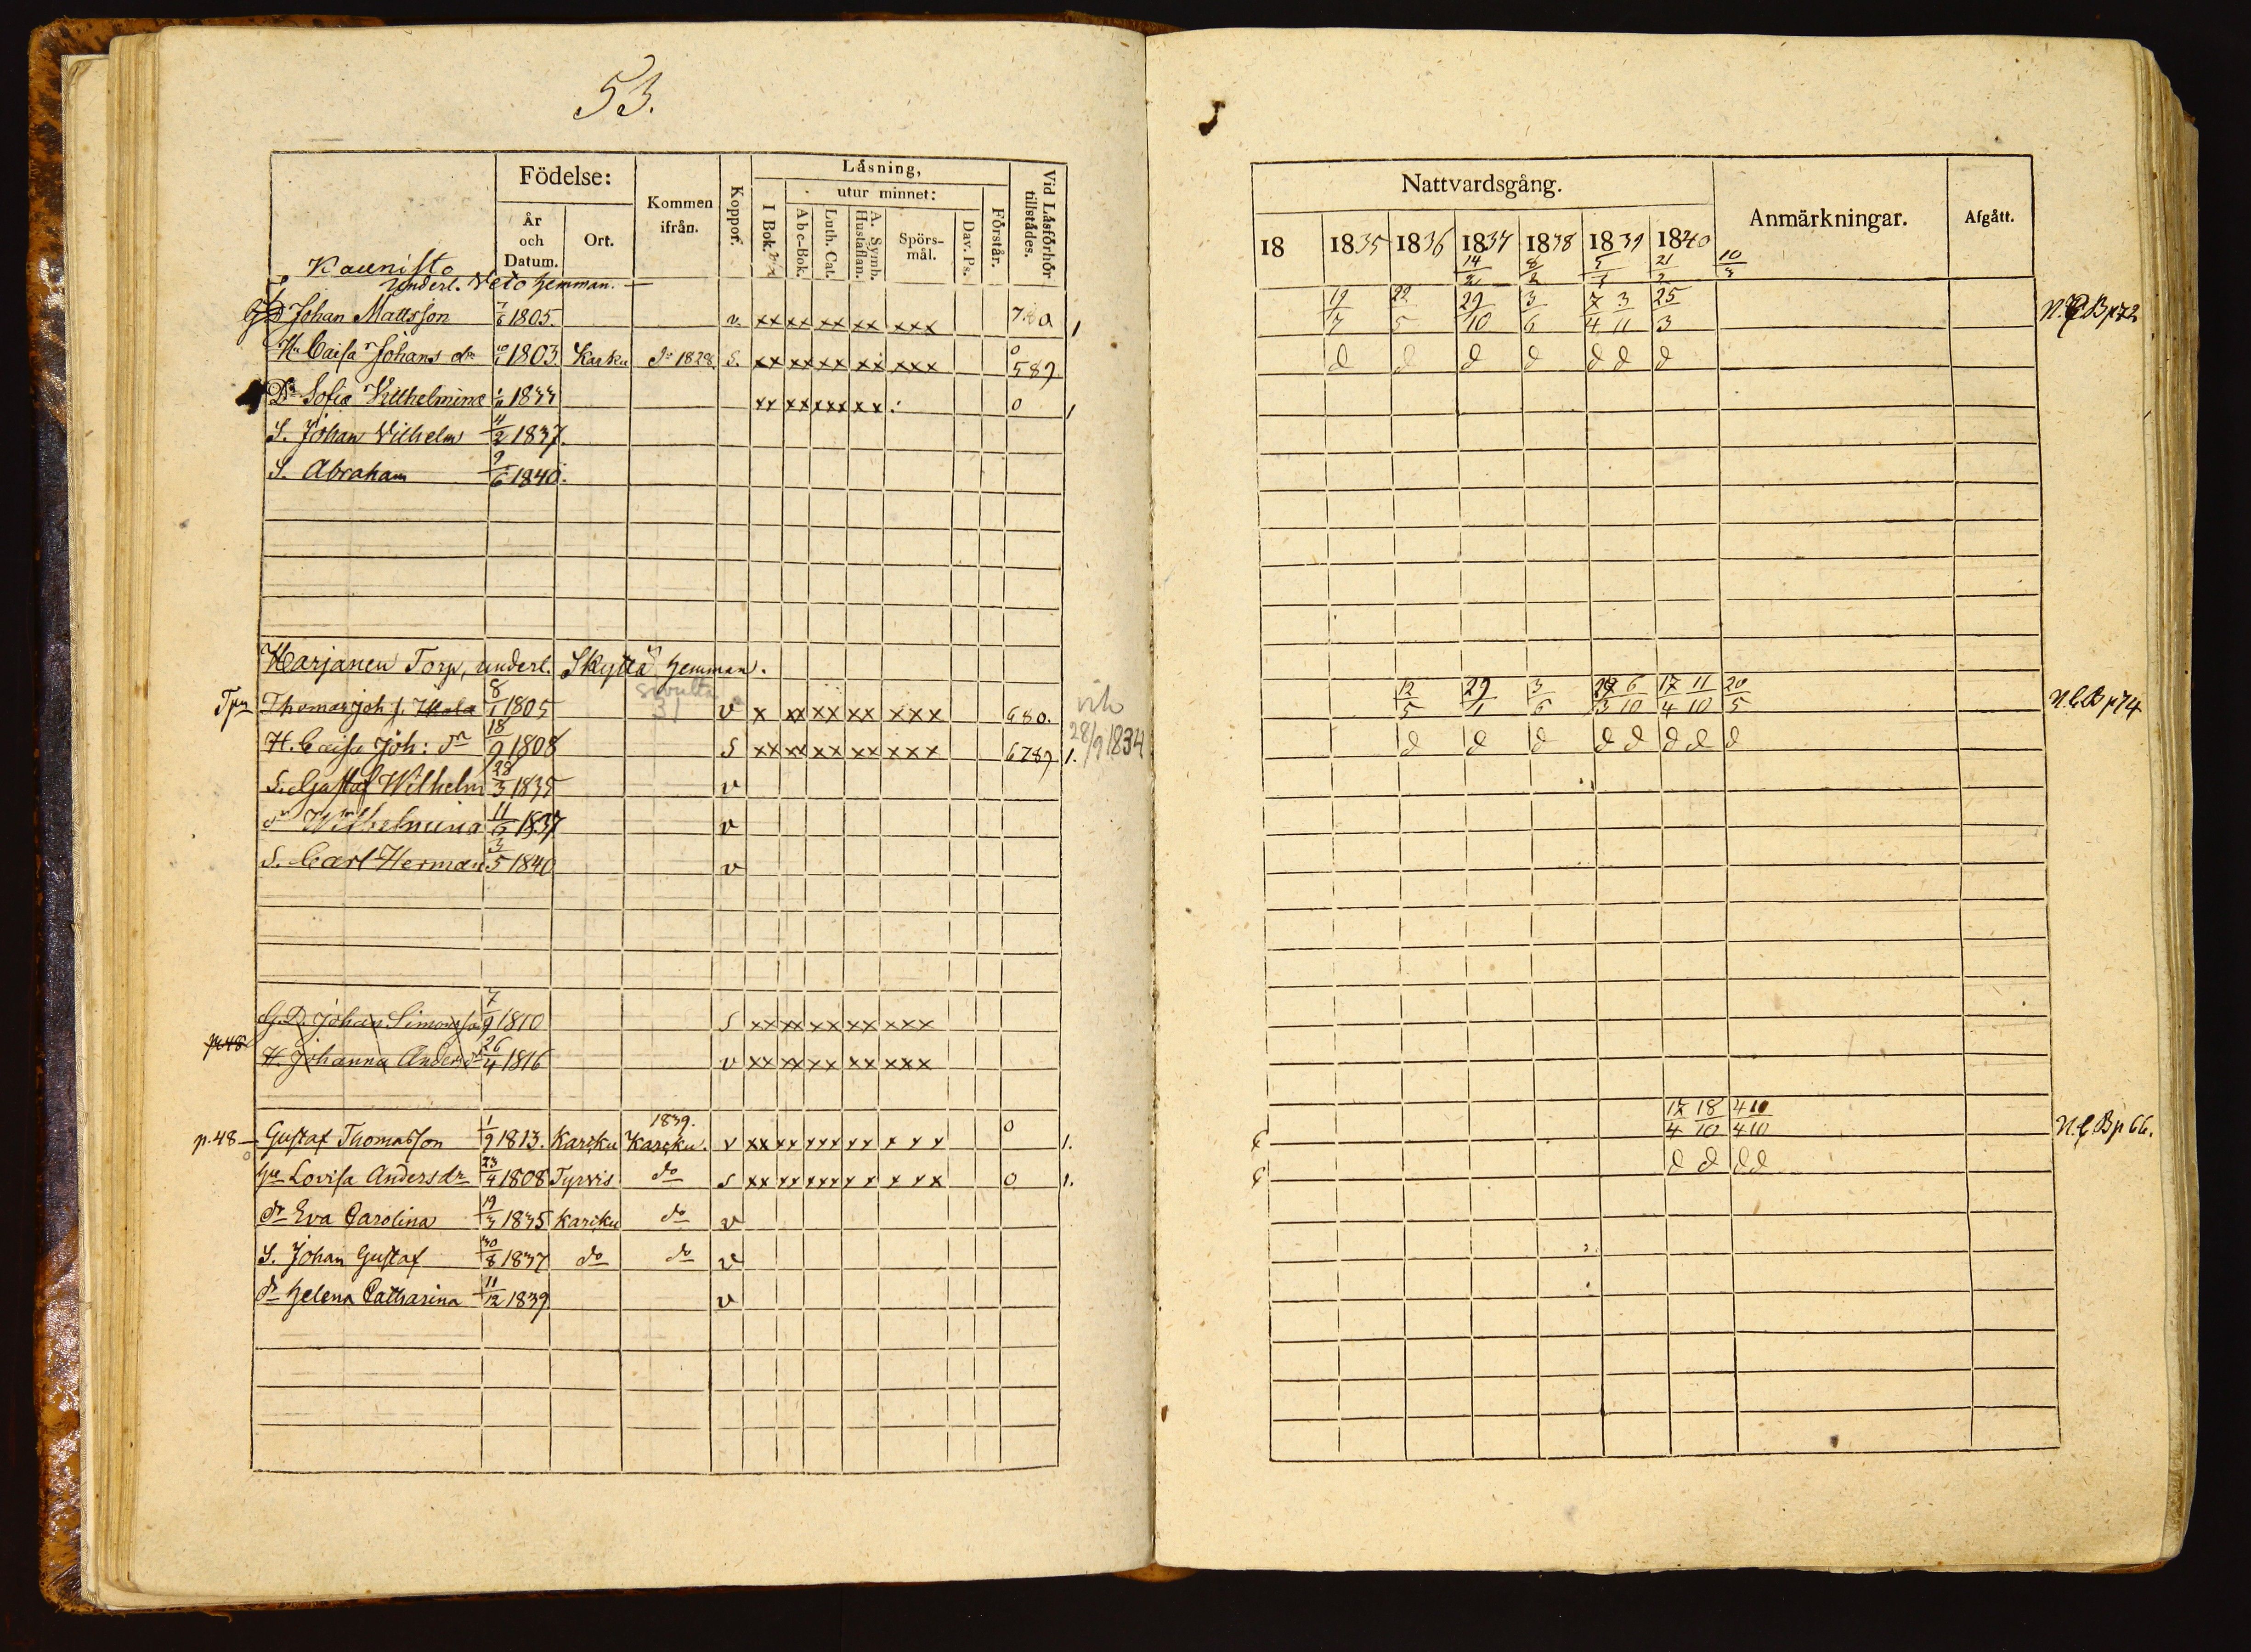 53.
Födelse:
År och Datum.
Ort.
Kommen ifrån.
Koppor.
Läsning,
utur minnet:
I Bok.
Abc-Bok.
Luth. Cat.
A. Symb. Hustaflan.
Spörs-mål.
Dav. Ps.
Förstår.
Vid Läsförhör tillstädes.
Kaunisto
underl. Veto hemman.
Johan Mattsson 1805. v. xx xx xx xx xxx
Hu Caisa Johans dr 1803. Karku do 1828. S. xx xx xx xx xxx 589
Dr Sofia Vilhelmina 1833 xx xx xxx xx 0 1
S. Johan Vilhelm 11/2 1837.
S. Abraham 9/6 1840.
Harjanen Torp, underl. Skyttä hemman.
Tpr Thomas Joh. s. 8/1 1805 31 v x xx xx xx xxx 680.
H. Caisa Joh: dr 18/9 1808 S xx xx xx xx xxx 6789 1. 28/9 1834
S. Gustaf Wilhelm 28/3 1835 v
dr Wilhelmina 1837 v
S. Carl Herman 3/5 1840 v
G.D. Johan Simonsson 7/9 1810 S xx xx xx xx xxx
p. 48 H. Johanna Anders dr 26/4 1816 v xx xx xx xx xxx
1839.
p. 48 Gustaf Thomasson 1/9 1813. Karcku Karcku. v xx xx xxx xx x x x 0 1.
Hu Lovisa Andersdr 23/4 1808 Tyrvis do S xx xx xxx x x x x x 0 1.
dr Eva Carolina 19/3 1835 Karcku do v
S. Johan Gustaf 30/8 1837 do do v
dr Helena Catharina 11/12 1839 v
Nattvardsgång.
Anmärkningar.
Afgått.
18 1835 1836 1837 1838 1839 1840
19/7 22/5 29/10 3/6 7/4 3/11 25/3 N. C. B p 72
12/5 29/1 3/6 6/10 17/4 11/10 20/5 N. C. B p 74
17/4 18/10 4/4 10/10 N. C. B p 66.